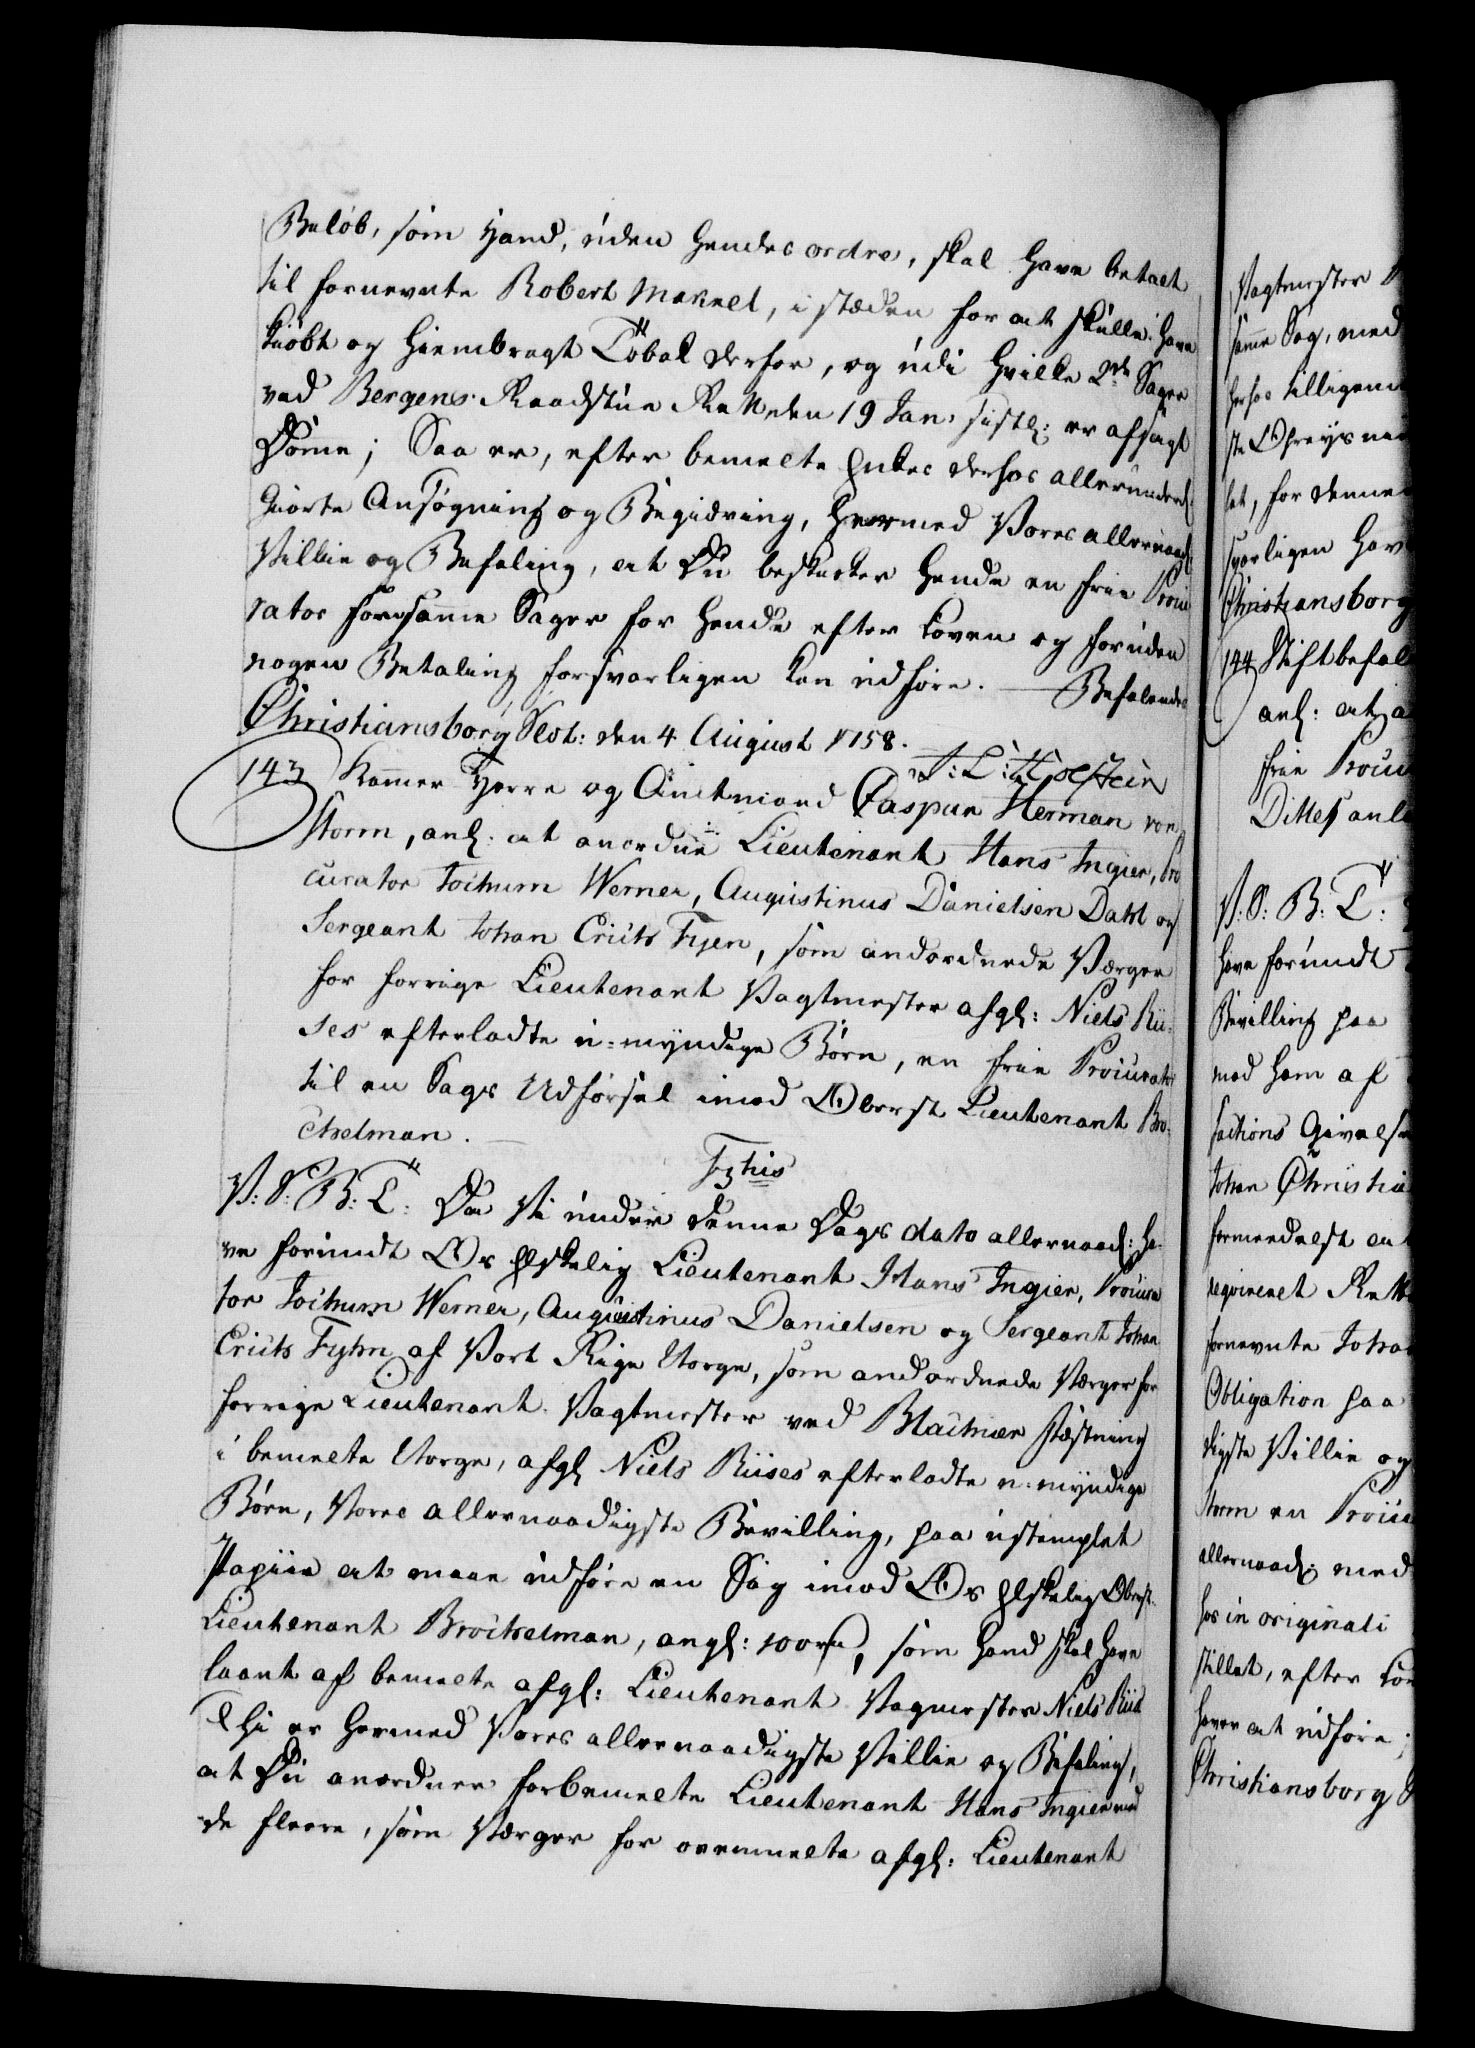 Beløb, som Hand, uden hendes ordre, skal have betalt
til fornevnte Robert Marnel, i stæden for at skulle have
kiøbt og hiembragt Tobak derfor, og udi hvilke 2de Sager
ved Bergens Raadstue Rett den 19 Jan: sistl: er afsagt
Domme; Saa er, efter bemelte Enkes derhos allerunderd:
giorte Ansøgning og Begiæring, hermed Vores allernaad:
Villie og Befaling, at Du beskikker hende en frie Procu
rator som samme Sager for hende efter Loven og foruden
nogen Betaling forsvarligen kan udføre. — Befalendes
Christiansborg Slot: den 4 August 1758.
J: L: Holstein
143 Kammer Herre og Amtmand Caspar Herman von
Storm, anl: at anordne Lieutenant Hans Ingier, Pro
curator Jochum Werner, Augustinus Danielsen Dahl og
Sergeant Johan Erichs Fyen, som andordnede Værger
for forrige Lieutenant Vagtmester afgl: Niels Rii-
ses efterladte u-myndige Børn, en frie Procurator
til en Sags Udførsel imod Oberst Lieutenant Bro-
chelman.
Fyhis
V: S: B: T: Da Vi under denne Dags dato allernaad: ha-
ve forundt Os Elskelig Lieutenant Hans Ingier, Procura
tor Jochum Werner, Augustinus Danielsen og Sergeant Johan
Erichs Fyhn af Vort Rige Norge, som andordnede Værger for
forrige Lieutenant Vagtmester ved Blachiær Fæstning
i bemelte Norge, afgl Niels Riises efterladte u-myndige
Børn, Vores allernaadigste Bevilling, paa ustemplet
Papiir at maae udføre en Sag imod Os Elskelig Oberst-
Lieutenant Brochelman, angl: 100 rd, som hand skal have
laant af bemelte afgl: Lieutenant Vagmester Niels Riis
Thi er hermed Vores allernaadigste Villie og Befaling,
at Du anordner forbemelte Lieutenant Hans Ingier med
de fleere, som Værger for ovenmelte afgl: Lieutenant
Vagtmester
samme Sag, med
herhos tilligemed
lat, for denne
svarligen hav
Christiansborg
144 Stiftbefal
anl: at a
frie Procu
Dittes anl
V: S: B: T:
have forundt
Bevilling paa
mod ham af
Johan Christia
formeedelst at
reqvireret Rett
fornevnte Joha
Obligation paa
digste Villie og
Storm en Procu
allernaad: med
hos in originali
stillet, efter Lov
haver at udføre;
Christiansborg